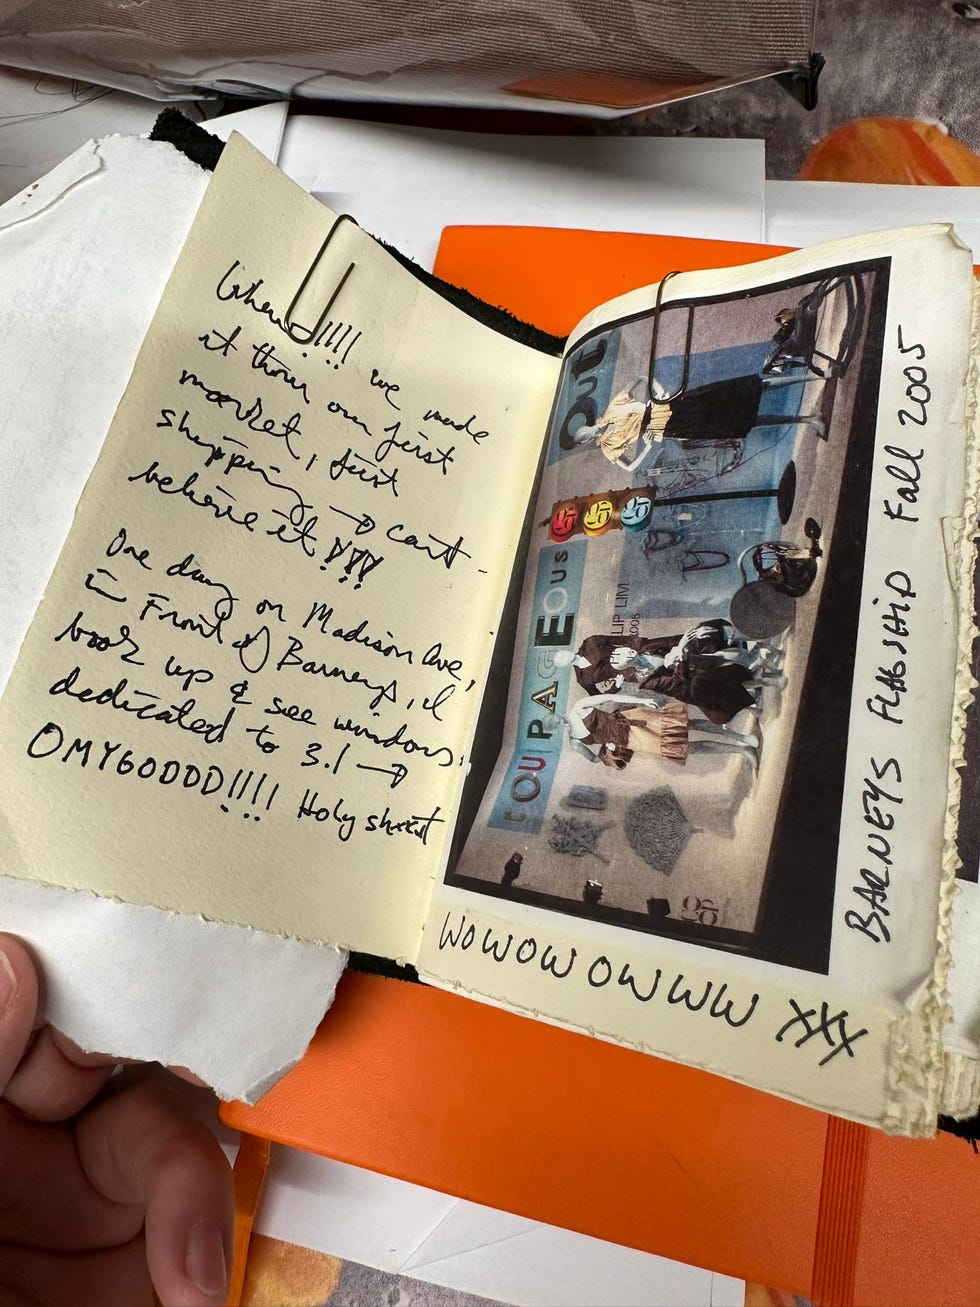 When!!!! we made
it throu our first
market, first
shipping → can't
believe it!!!!
One day on Madison Ave,
in Front of Barneys, I
look up & see windows
dedicated to 3.1 →
OMYGODDD!!!! Holy shxxt
OUT
EQUIPAGEOUS
LIP LIM
2005
WOWOWOWWW XXX
BARNEYS FLAGSHIP Fall 2005